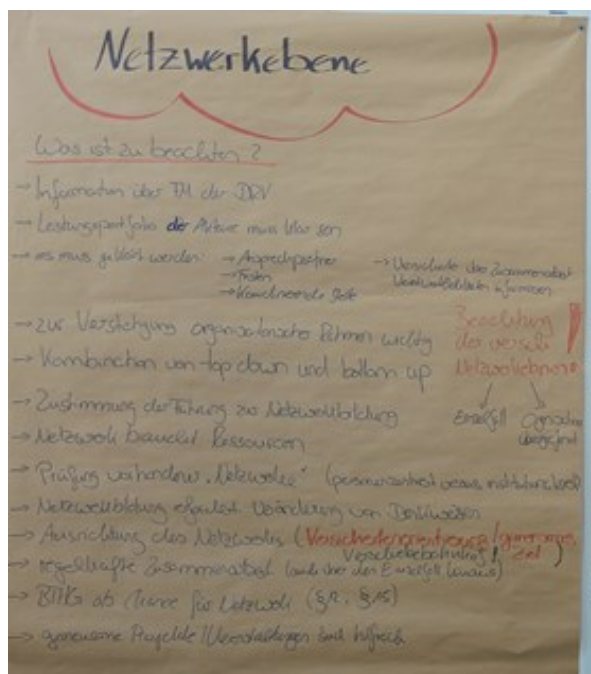 Netzwerkebene
Was ist zu beachten?
→ Information über FM der DRV
→ Leistungsportfolio der Akteure muss klar sein
→ es muss geklärt werden: → Ansprechpartner
→ Fristen
→ Koordinierende Stelle
→ Vorschritte der Zusammenarbeit
→ zur Verstetigung organisatorischer Rahmen wichtig
→ Kombination von top down und bottom up
Beachtung
der versch.
Netzwerkebenen
Einzelfall
→ Zustimmung der Führung zur Netzwerkbildung
→ Netzwerk braucht Ressourcen
→ Prüfung vorhandener „Netzwerke“ (personenzentriert versus institutionell)
→ Netzwerkbildung erfordert Veränderung von Denkweisen
→ Ausrichtung des Netzwerks (Versichertenorientierung / gemeinsames Ziel)
→ regelhafte Zusammenarbeit (auch über den Einzelfall hinaus)
→ BTHG als Chance für Netzwerk (§12, §15)
→ gemeinsame Projekte / Veranstaltungen sind hilfreich